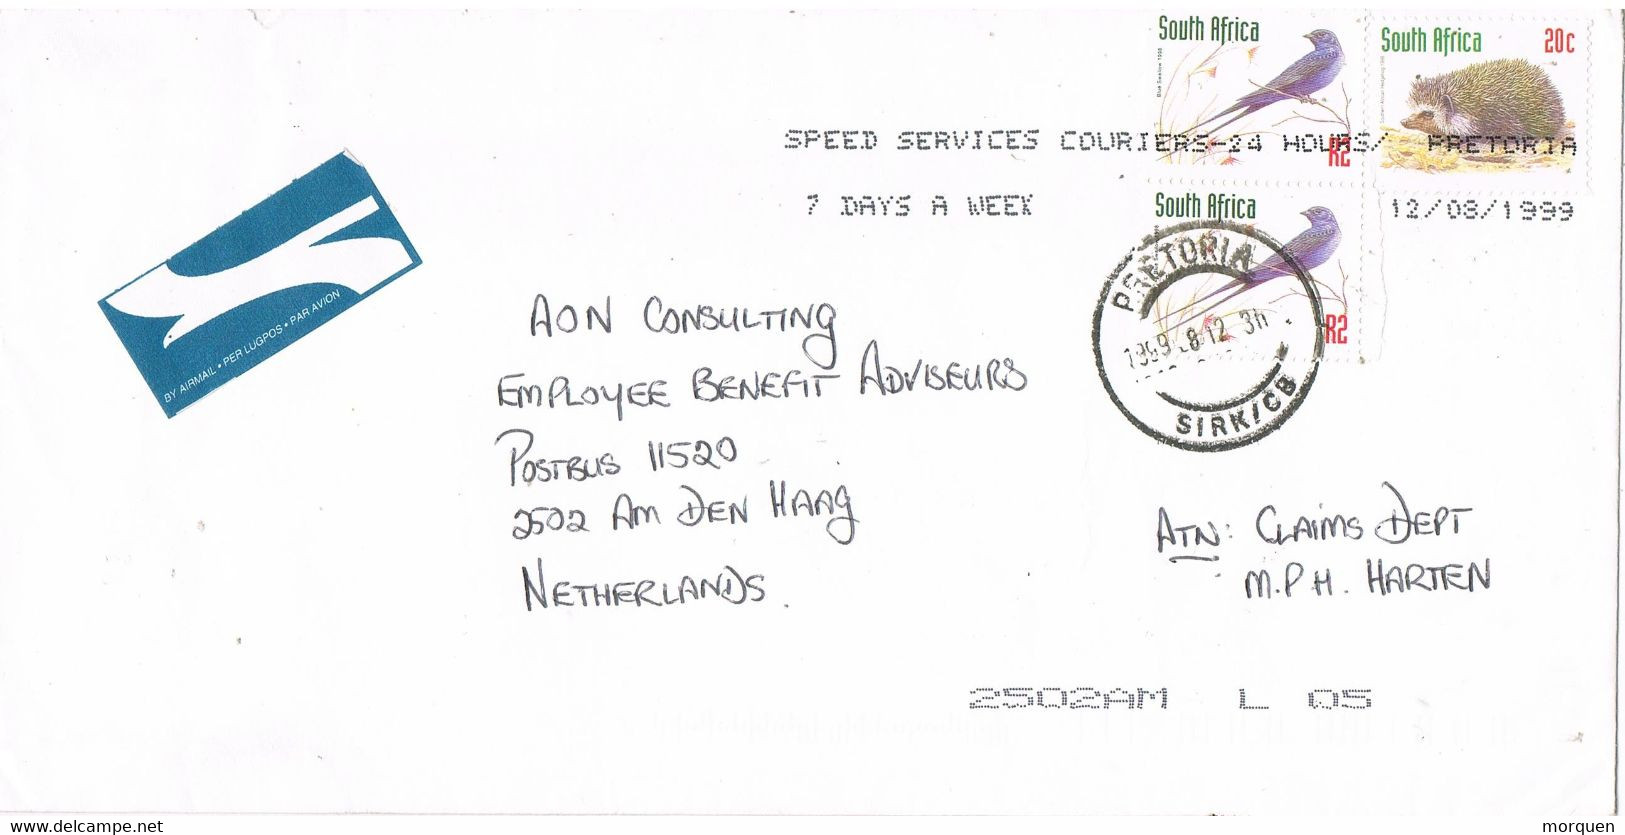 South Africa
Blue Swallow 1998
R2
South Africa 20c
SPEED SERVICES COURIERS-24 HOURS/ PRETORIA
7 DAYS A WEEK
12/08/1999
South Africa
R2
PRETORIA
SIRK/CB
BY AIRMAIL • PER LUGPOS • PAR AVION
AON CONSULTING
EMPLOYEE BENEFIT ADVISEURS
POSTBUS 11520
2502 AM DEN HAAG
NETHERLANDS.
ATN: CLAIMS DEPT
M.P.H. HARTEN
2502AM L 05
www.delcampe.net
morquen